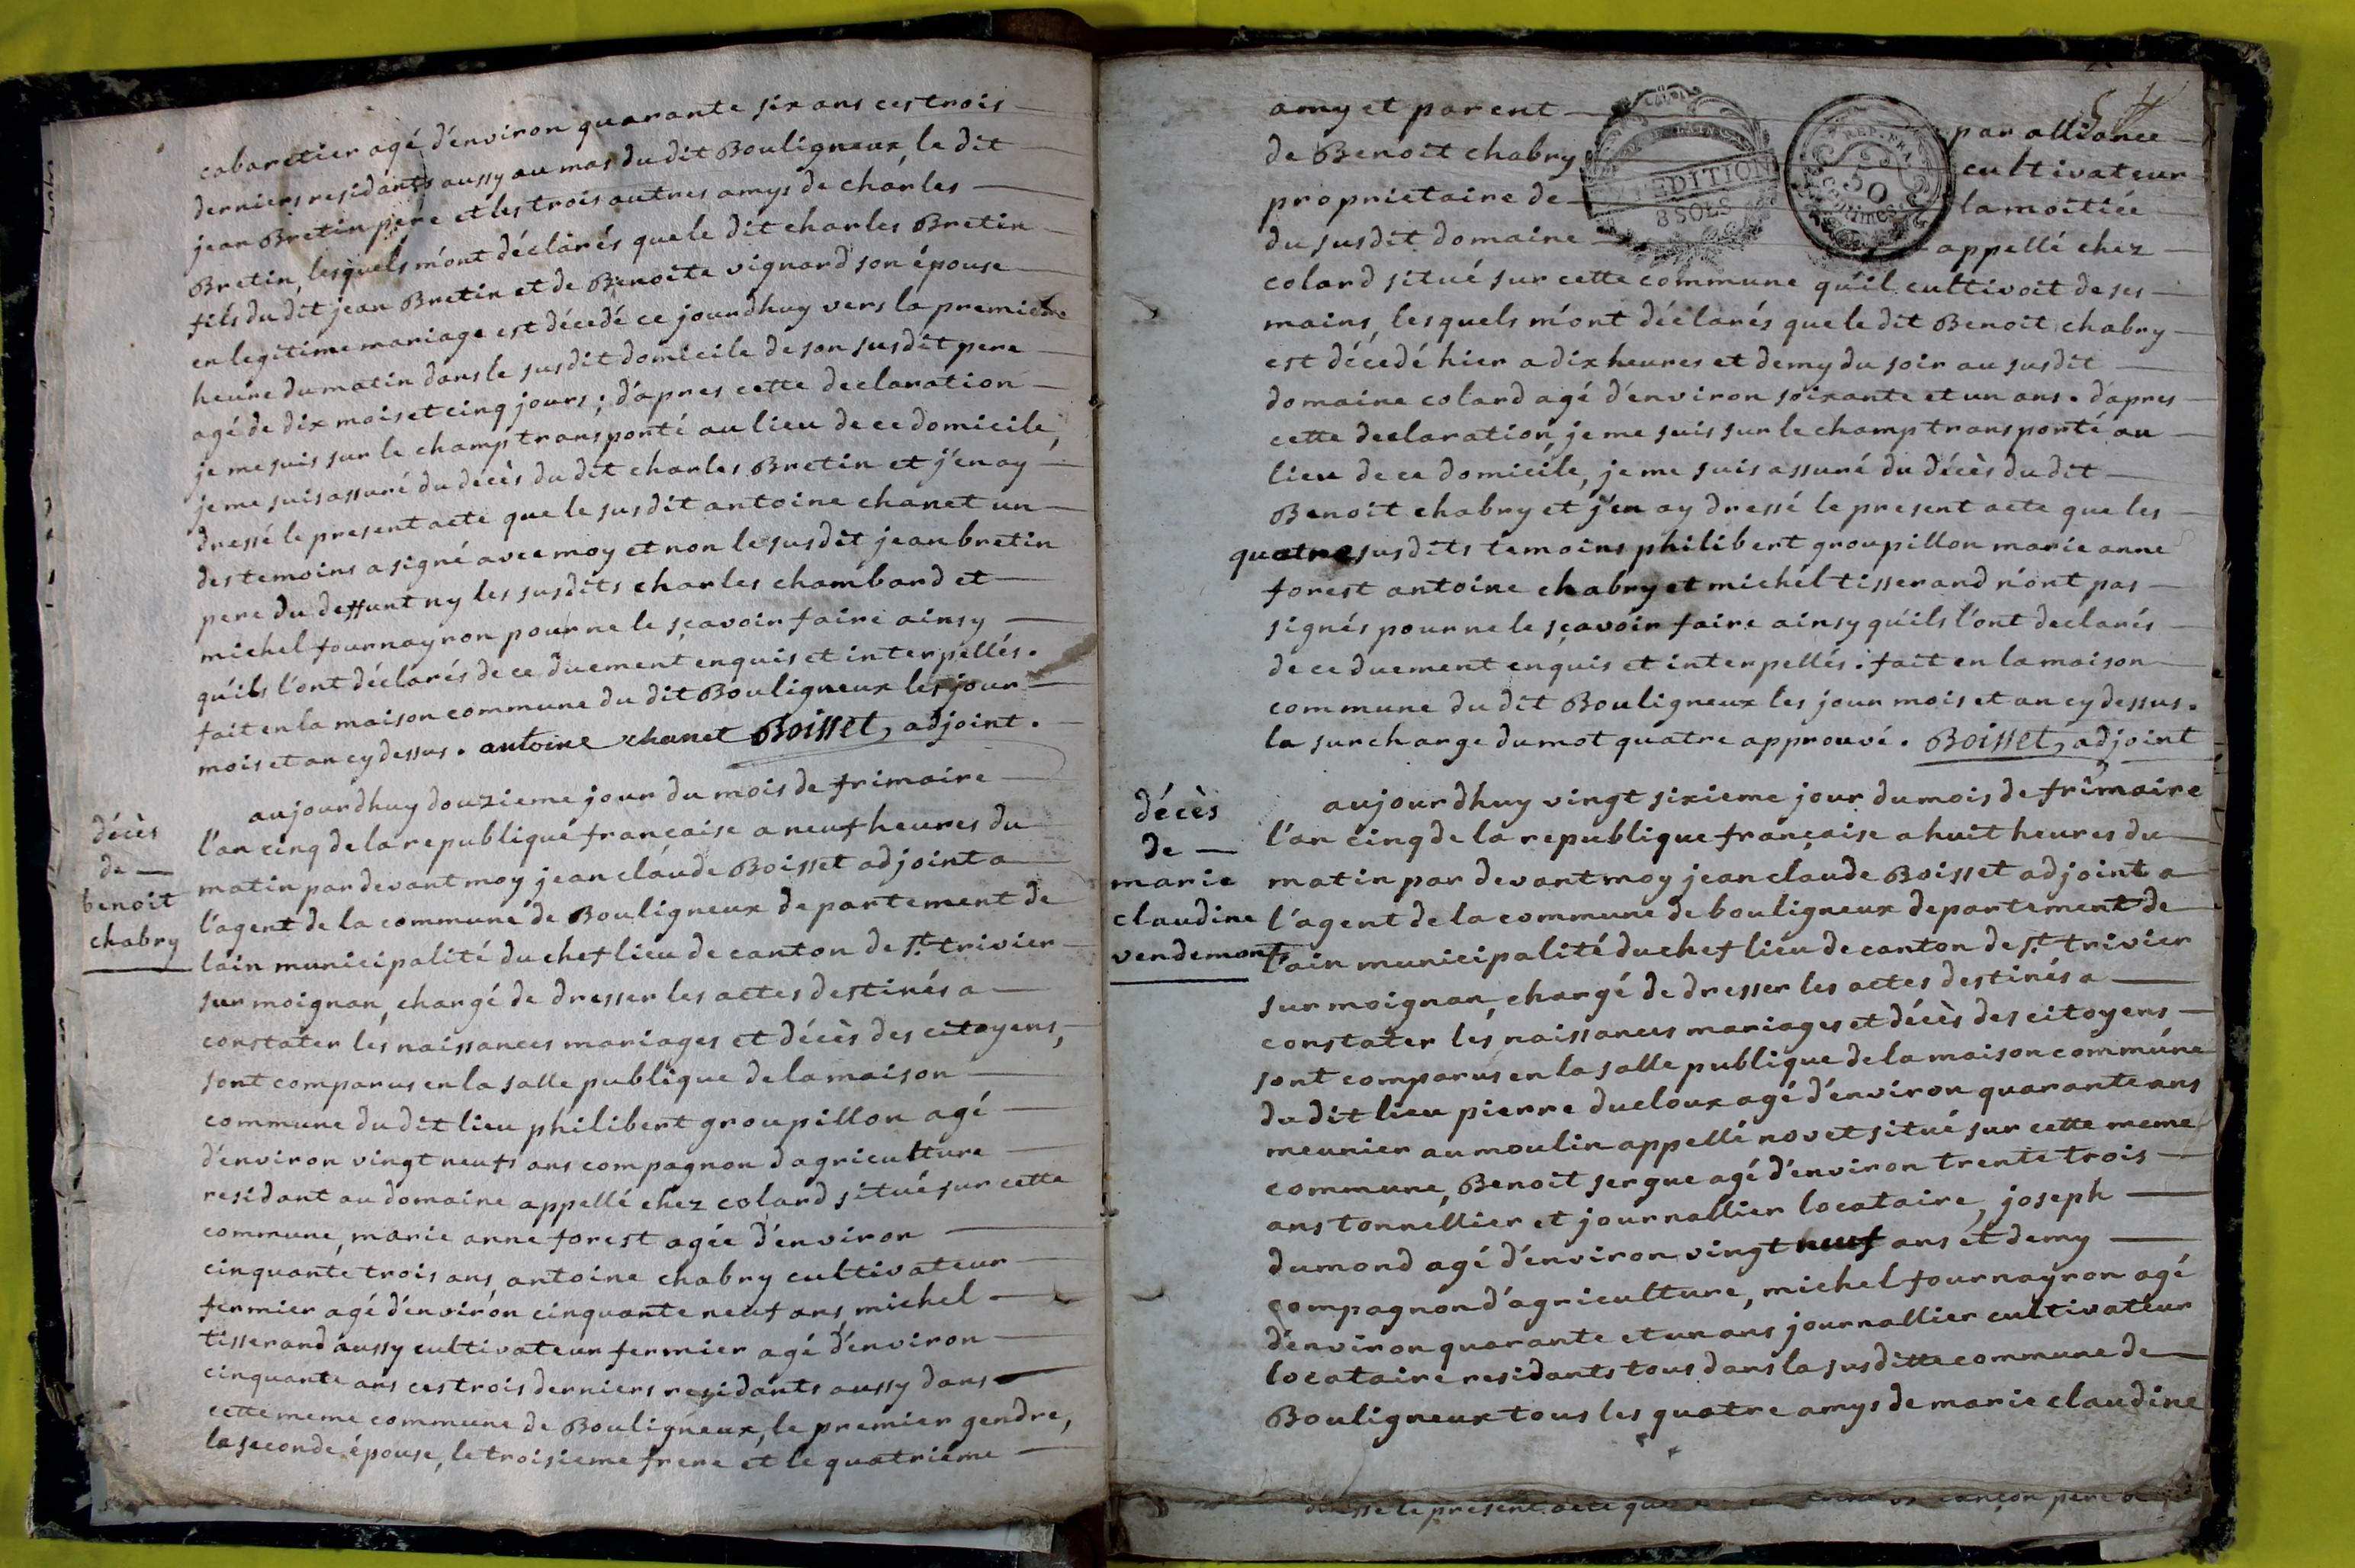 cabaretier agé d'environ quarante six ans ces trois
derniers residants aussy au mas du dit Bouligneux, le dit
jean Bretin pere et les trois autres amys de charles
Bretin, lesquels m'ont déclarés que le dit charles Bretin
fils du dit jean Bretin et de Benoite vignard son épouse
en legitime mariage est décedé ce jourdhuy vers la premiere
heure du matin dans le susdit domicile de son susdit pere
agé de dix mois et cinq jours ; d'apres cette declaration
je me suis sur le champ transporté au lieu de ce domicile,
je me suis assuré du decès du dit charles Bretin et j'en ay
dressé le present acte que le susdit antoine chanet un
des temoins a signé avec moy et non le susdit jean bretin
pere du deffunt ny les susdits charles chambard et
michel fournayron pour ne le sçavoir faire ainsy
qu'ils l'ont déclarés de ce duement enquis et interpellés.
fait en la maison commune du dit Bouligneux les jour
mois et an cy dessus. antoine chanet Boisset, adjoint.
décès
de
benoit
chabry
aujourdhuy douzieme jour du mois de frimaire
l'an cinq de la republique française a neuf heures du
matin par devant moy jean claude Boisset adjoint a
l'agent de la commune de Bouligneux departement de
lain municipalité du chef lieu de canton de st. trivier
sur moignan, chargé de dresser les actes destinés a
constater les naissances mariages et décès des citoyens,
sont comparus en la salle publique de la maison
commune du dit lieu philibert groupillon agé
d'environ vingt neufs ans compagnon d'agriculture
residant au domaine appellé chez colard situé sur cette
commune, marie anne forest agée d'environ
cinquante trois ans, antoine chabry cultivateur
fermier agé d'environ cinquante neuf ans, michel
tisserand aussy cultivateur fermier agé d'environ
cinquante ans ces trois derniers residants aussy dans
cette meme commune de Bouligneux, le premier gendre,
la seconde épouse, le troisieme frere et le quatrième
amy et parent par alliance
de Benoit chabry cultivateur
proprietaire de la moitiée
du susdit domaine appellé chez
EDITION
8 SOLS
REP. FRA
50
centimes
colard situé sur cette commune qu'il cultivoit de ses
mains, lesquels m'ont déclarés que le dit Benoit chabry
est décedé hier a dix heures et demy du soir au susdit
domaine colard agé d'environ soixante et un ans. d'apres
cette declaration, je me suis sur le champ transporté au
lieu de ce domicile, je me suis assuré du décès du dit
Benoit chabry et j'en ay dressé le present acte que les
quatre susdits temoins philibert groupillon marie anne
forest antoine chabry et michel tisserand n'ont pas
signés pour ne le sçavoir faire ainsy qu'ils l'ont declarés
de ce duement enquis et interpellés. fait en la maison
commune du dit Bouligneux les jour mois et an cy dessus.
la surcharge du mot quatre approuvé. Boisset, adjoint
décès
de
marie
claudine
vendemont
aujourdhuy vingt sixieme jour du mois de frimaire
l'an cinq de la republique française a huit heures du
matin par devant moy jean claude Boisset adjoint a
l'agent de la commune de bouligneux departement de
l'ain municipalité du chef lieu de canton de st. trivier
sur moignan, chargé de dresser les actes destinés a
constater les naissances mariages et décès des citoyens
sont comparus en la salle publique de la maison commune
du dit lieu pierre ducloux agé d'environ quarante ans
meunier au moulin appellé novet situé sur cette meme
commune, Benoit sergue agé d'environ trente trois
ans tonnellier et journallier locataire, joseph
dumond agé d'environ vingt neuf ans et demy
compagnon d'agriculture, michel fournayron agé
d'environ quarante et un ans journallier cultivateur
locataire residants tous dans la susditte commune de
Bouligneux tous les quatre amys de marie claudine
dressé le present acte que pere